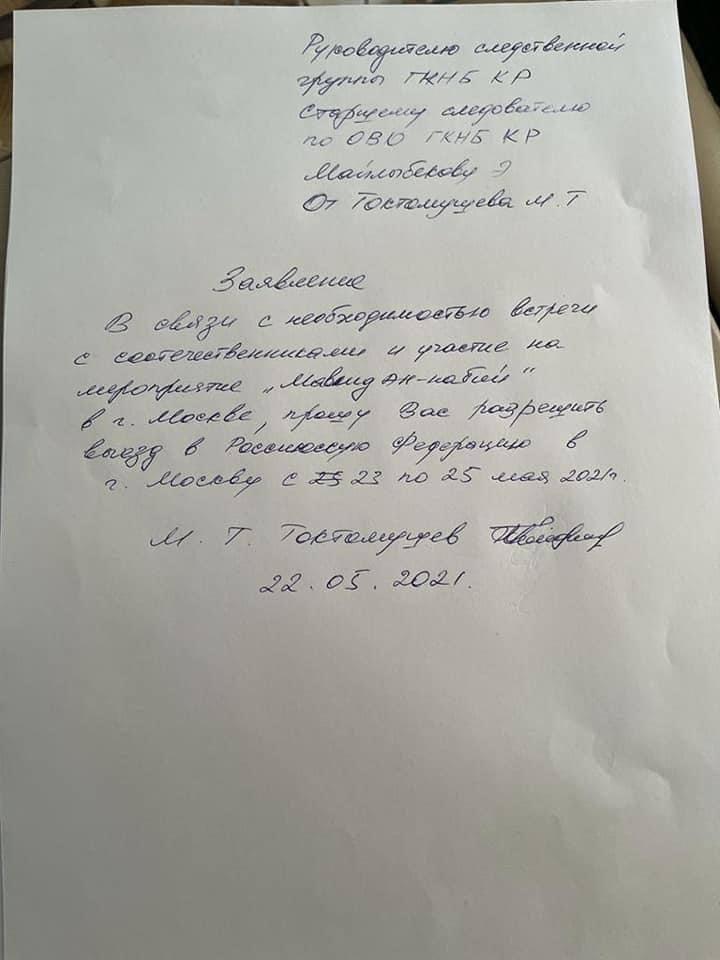 Руководителю следственной
группы ГКНБ КР
Старшему следователю
по ОВО ГКНБ КР
Майлыбекову Э
От Токтомушева М. Т
Заявление
В связи с необходимостью встречи
с соотечественниками и участие на
мероприятие „Мавлид Ан-набий"
в г. Москве, прошу Вас разрешить
выезд в Российскую Федерацию в
г. Москву с 23 по 25 мая 2021г.
М. Т. Токтомушев
22.05.2021.